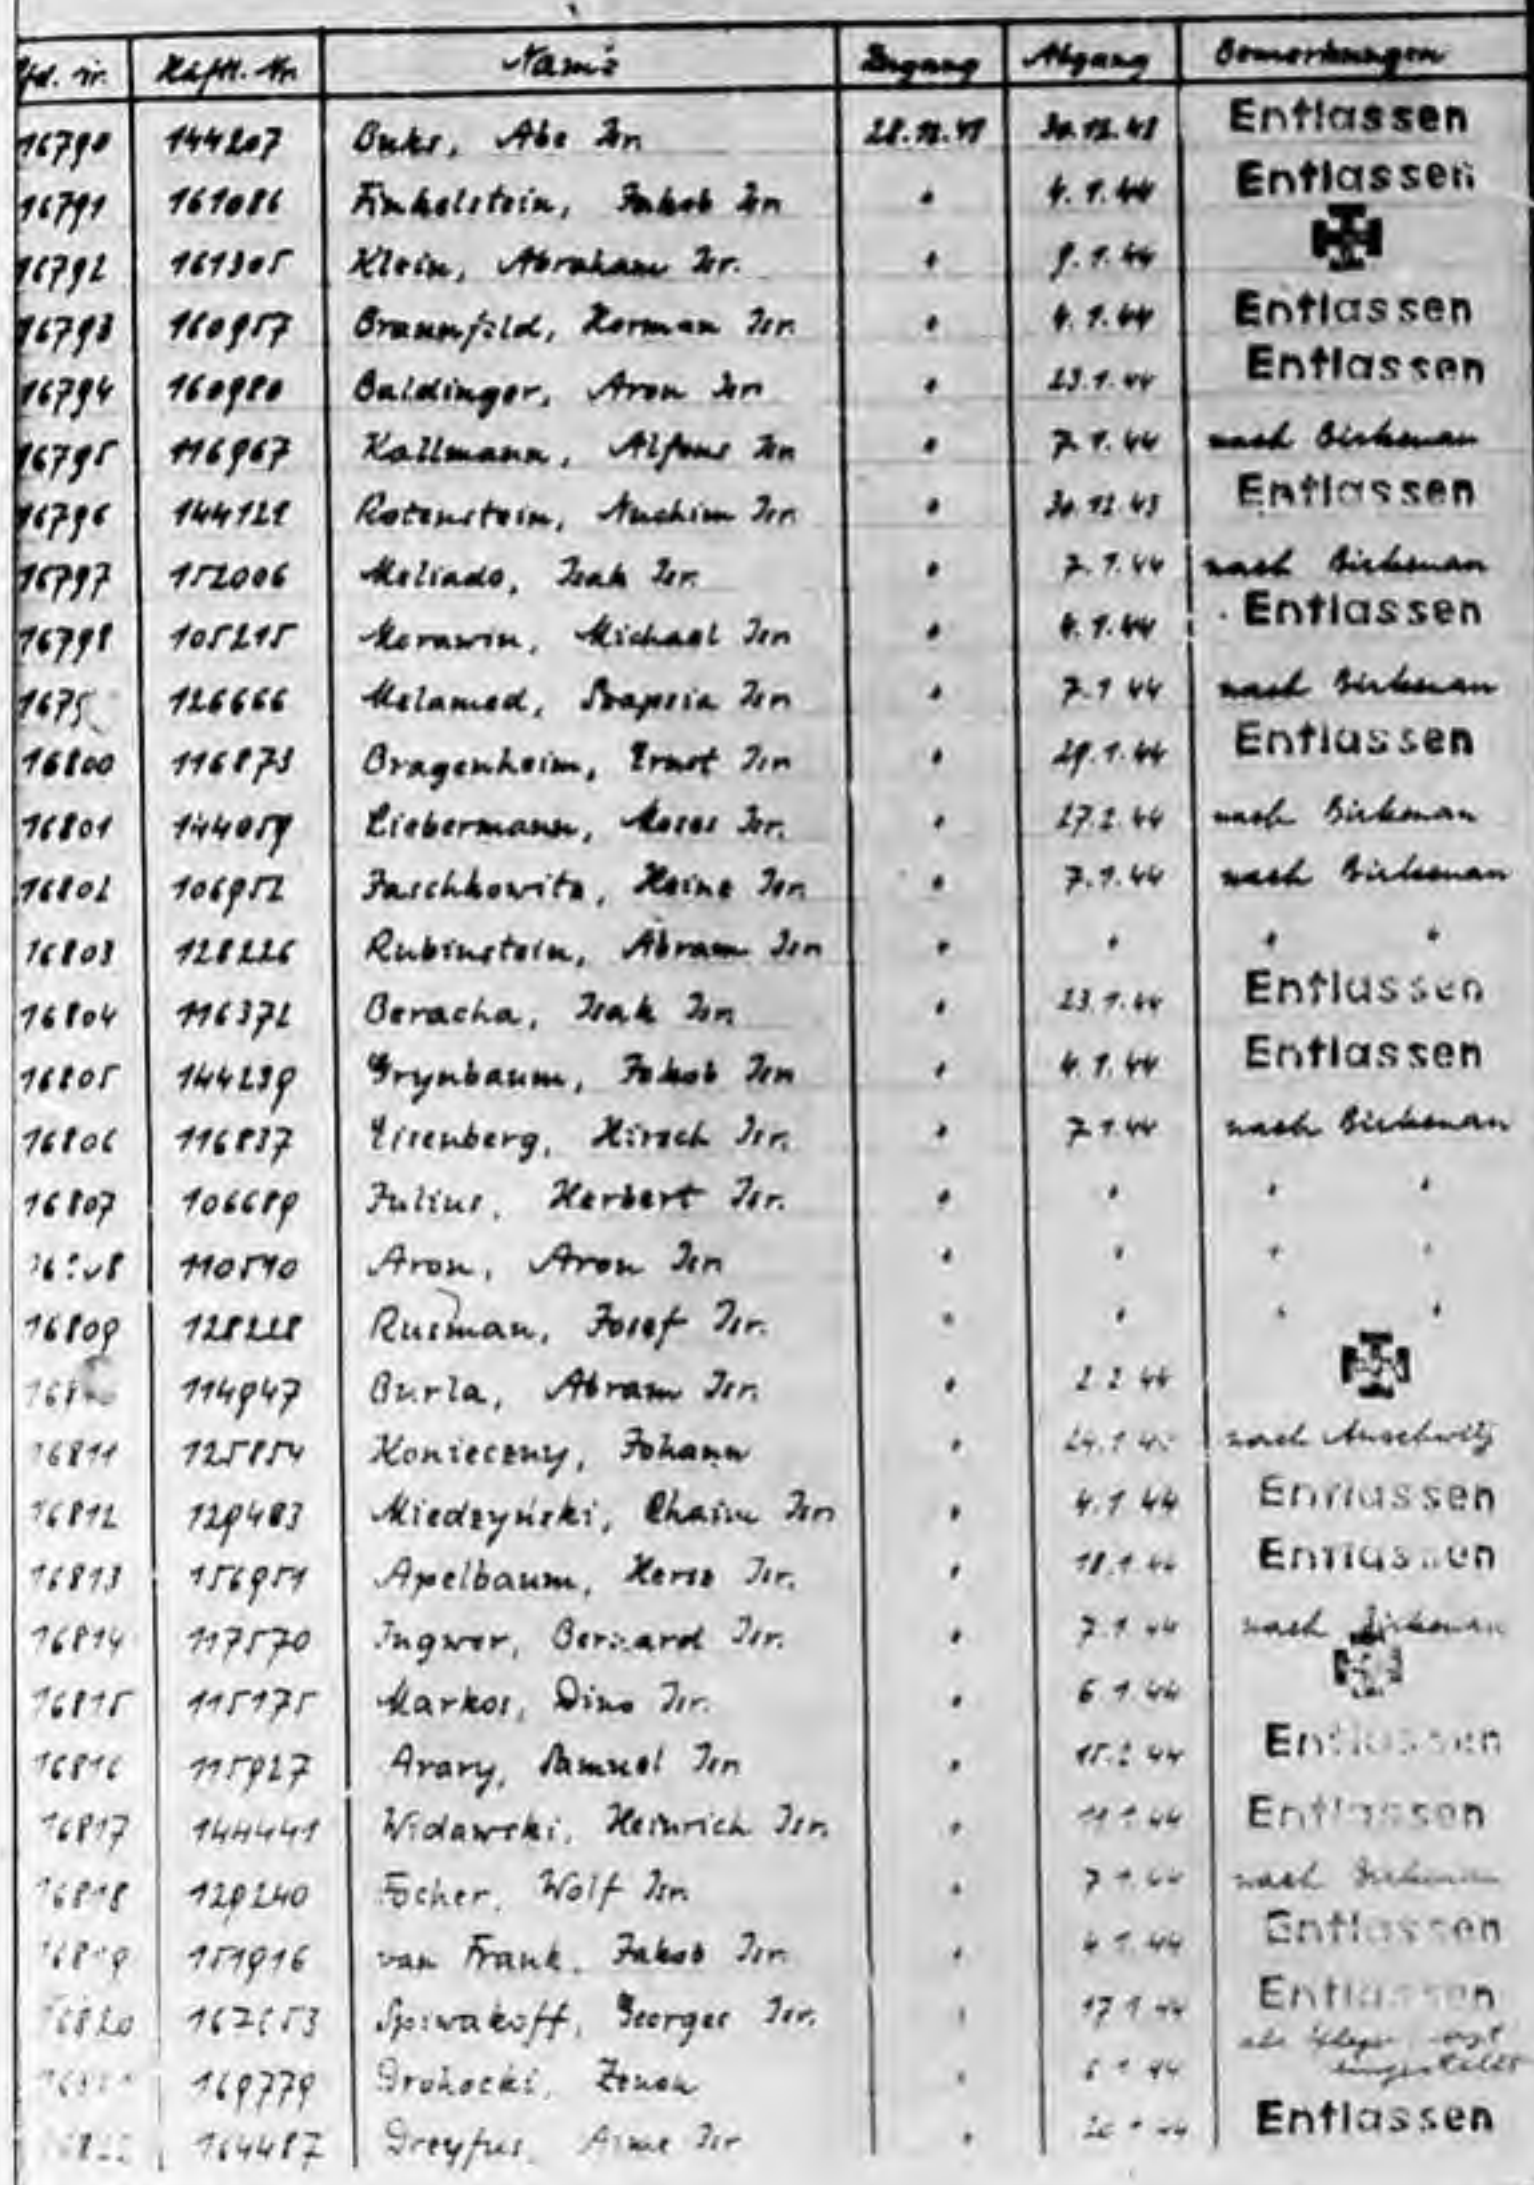 Lfd. Nr. Häftl. Nr. Name Zugang Abgang Bemerkungen
16790 144207 Buks, Abe Isr. 28.12.43 30.12.43 Entlassen
16791 161086 Finkelstein, Jakob Isr. " 4.1.44 Entlassen
16792 161305 Klein, Abraham Isr. " 9.1.44
16793 160957 Braunfeld, Herman Isr. " 4.1.44 Entlassen
16794 160980 Baldinger, Aron Isr. " 23.1.44 Entlassen
16795 116967 Kallmann, Alfons Isr. " 7.1.44 nach Birkenau
16796 144121 Rotenstein, Nuchim Isr. " 30.12.43 Entlassen
16797 152006 Meliado, Isak Isr. " 7.1.44 nach Birkenau
16798 105215 Morawin, Michael Isr. " 4.1.44 Entlassen
1679 126666 Melamed, Isr. " 7.1.44 nach Birkenau
16800 116873 Bragenheim, Ernst Isr. " 29.1.44 Entlassen
16801 144059 Liebermann, Moses Isr. " 27.2.44 nach Birkenau
16802 106952 Jaschkowitz, Heinz Isr. " 7.1.44 nach Birkenau
16803 128226 Rubinstein, Abram Isr. " " " "
16804 116372 Beracha, Isak Isr. " 23.1.44 Entlassen
16805 144239 Grynbaum, Jakob Isr. " 4.1.44 Entlassen
16806 116837 Eisenberg, Hirsch Isr. " 7.1.44 nach Birkenau
16807 106689 Julius, Herbert Isr. " " " "
16808 110510 Aron, Aron Isr. " " " "
16809 128228 Rusman, Josef Isr. " " " "
168 114947 Burla, Abram Isr. " 2.2.44
16811 125854 Konieczny, Johann " nach Auschwitz
16812 129483 Miedzyński, Chaim Isr. " 4.1.44 Entlassen
16813 156951 Apelbaum, Hersz Isr. " 18.1.44 Entlassen
16814 117570 Ingwer, Bernard Isr. " 7.1.44 nach Birkenau
16815 115175 Markos, Dino Isr. " 6.1.44
16816 115927 Arary, Samuel Isr. " 15.2.44 Entlassen
16817 144441 Widawski, Heinrich Isr. " 11.1.44 Entlassen
16818 129240 Focher, Wolf Isr. " 7.1.44 nach Birkenau
16819 151916 van Frank, Jakob Isr. " 4.1.44 Entlassen
16820 167653 Spiwakoff, Georges Isr. " 17.1.44 Entlassen
als
eingestellt
169779 Drohocki, Zenon " 6.1.44
164487 Dreyfus, Aime Isr. " Entlassen